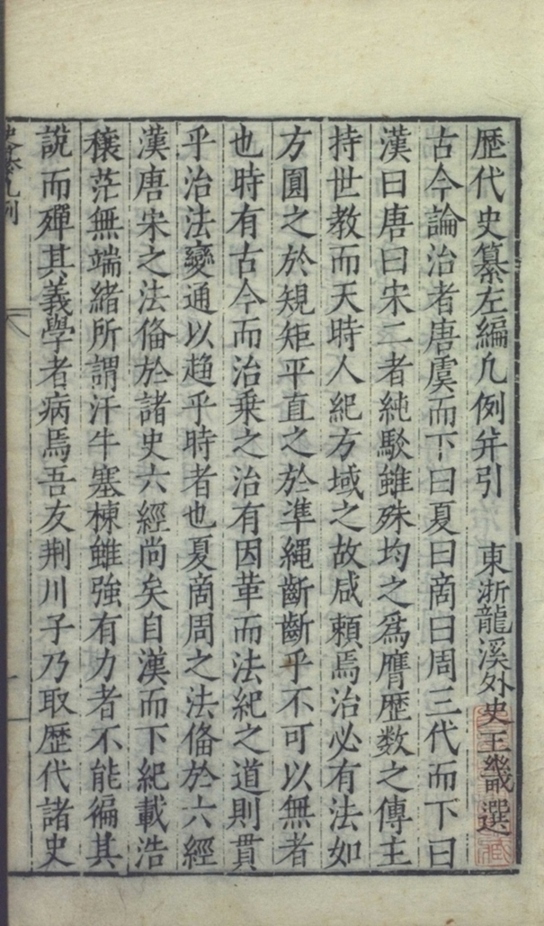 歷代史纂左編凡例并引　東浙龍溪外史王畿選
古今論治者唐虞而下曰夏曰商曰周三代而下曰
漢曰唐曰宋二者純駁雖殊均之爲膺歷数之傳主
持世教而天時人紀方域之故咸賴焉治必有法如
方圓之於規矩平直之於準繩斷斷乎不可以無者
也時有古今而治乗之治有因革而法紀之道則貫
乎治法變通以趋乎時者也夏商周之法俻於六經
漢唐宋之法俻於諸史六經尚矣自漢而下紀載浩
穰茫無端緒所謂汗牛塞棟雖強有力者不能徧其
說而殫其義學者病焉吾友荆川子乃取歷代諸史